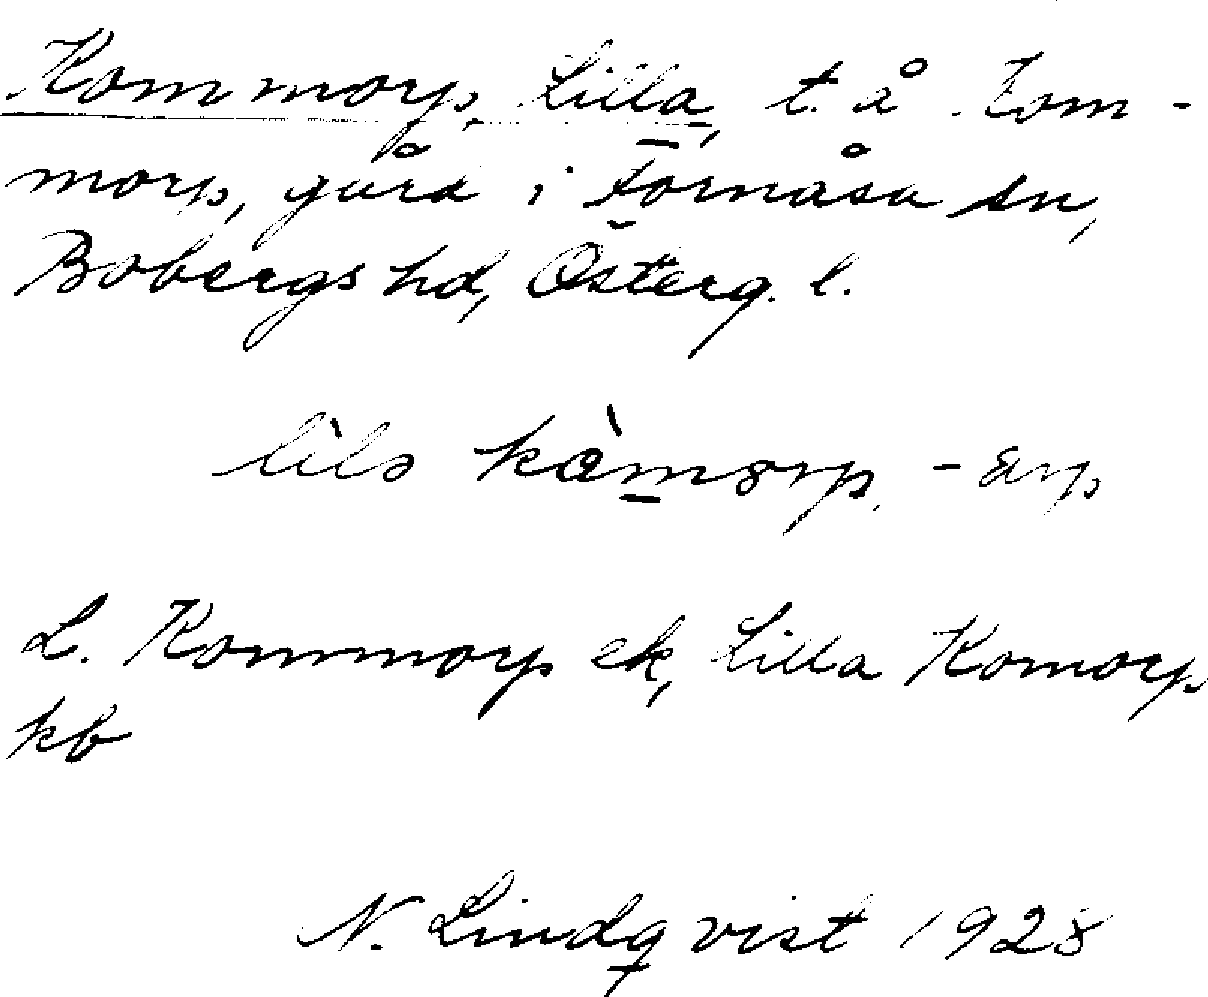 Kommorp, Lilla, t. å Kom-
morp, gård i Fornåsa sn,
Bobergs hd, Österg. l.
kòmorp, -arp
L. Kommorp ek, Lilla Komorp
kb
N. Lindqvist 1928